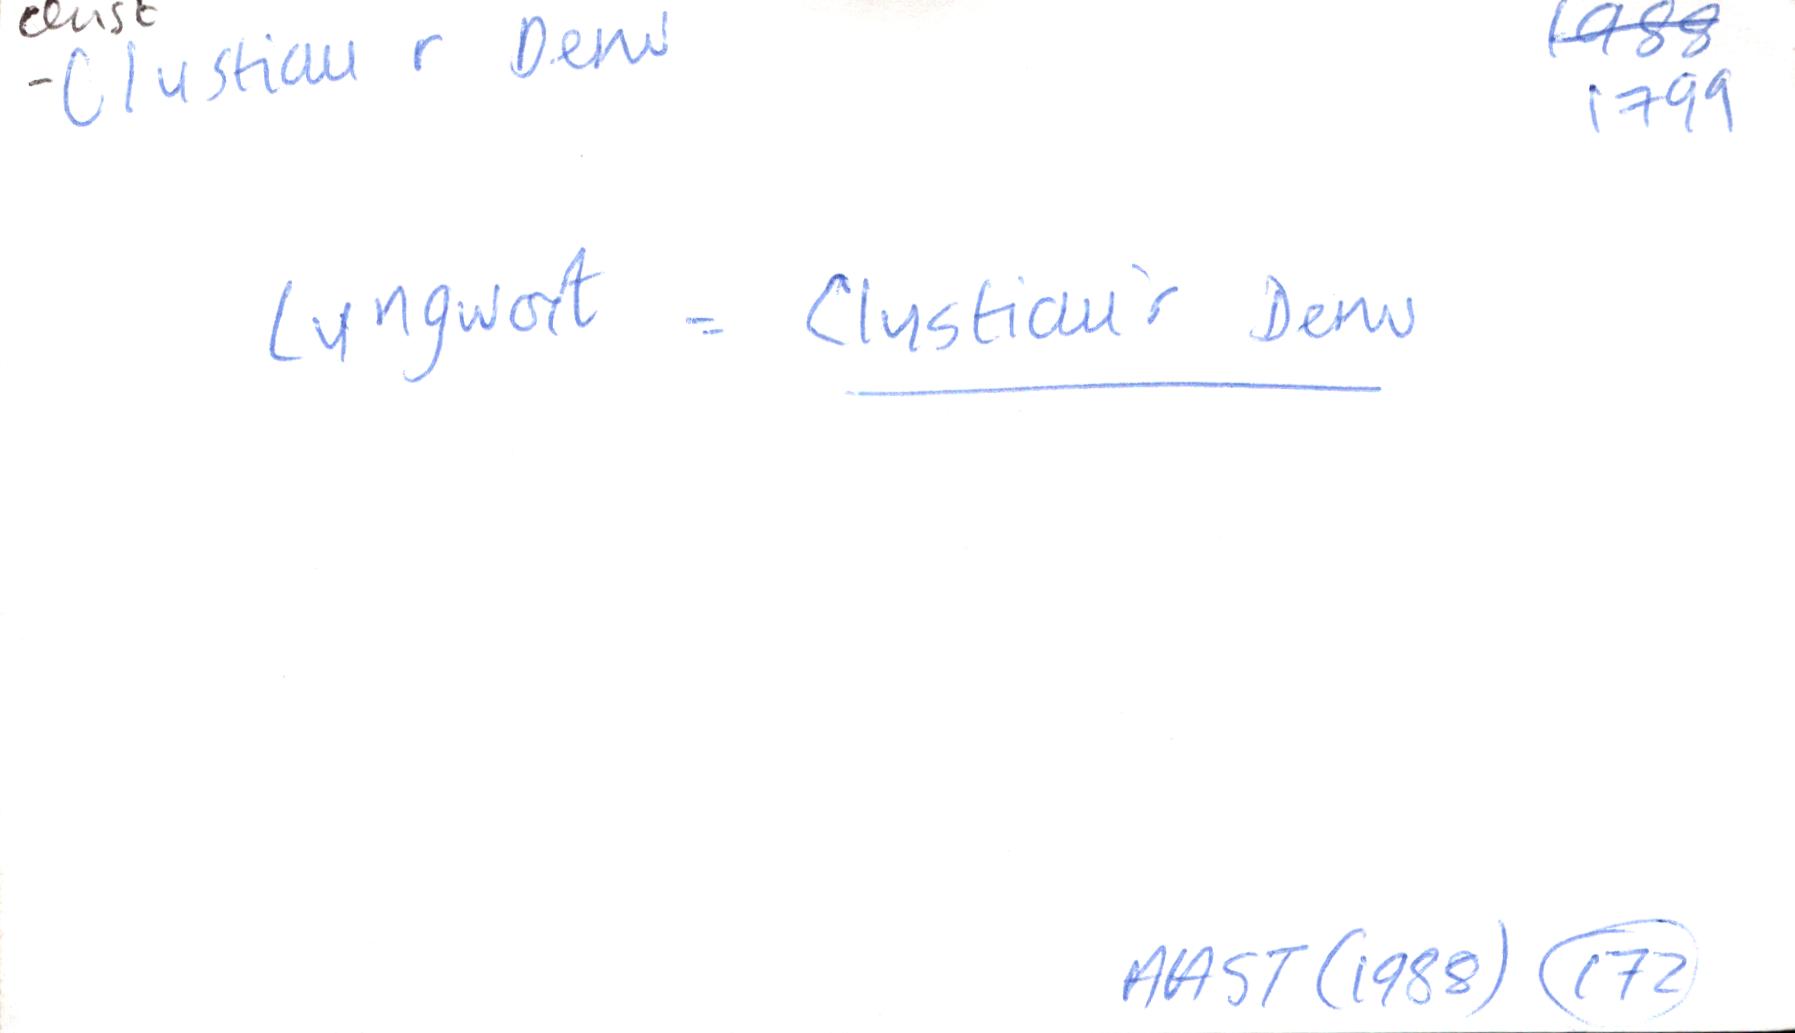 clust
-Clustiau r Derw
1988
1799
Lungwort = Clustiau'r Derw
AAST (1988) 172